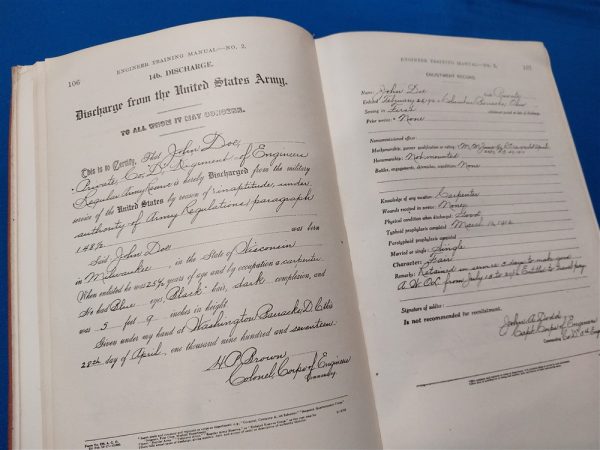 106
ENGINEER TRAINING MANUAL—NO. 2.
14b. DISCHARGE.
Discharge from the United States Army.
TO ALL WHOM IT MAY CONCERN:
This is to Certify, That John Doe,
Private, Co. D, Regiment of Engineers
Regular Army Reserve is hereby Discharged from the military
service of the United States by reason of inaptitude, under
authority of Army Regulations, paragraph
148½
Said John Doe was born
in Milwaukee in the State of Wisconsin
When enlisted he was 25 years of age and by occupation a carpenter
He had Blue eyes, Black hair, dark complexion, and
was 5 feet 9 inches in height
Given under my hand at Washington Barracks, D.C. this
28th day of April, one thousand nine hundred and seventeen
H.P. Brown,
Colonel, Corps of Engineers
Commanding
ENGINEER TRAINING MANUAL—NO. 2.
107
ENLISTMENT RECORD.
Name: John Doe Grade: Private
Enlisted February
Serving in First
Prior service: None
Noncommissioned officer:
Marksmanship, gunner qualification or rating:
Horsemanship: Not mounted
Battles, engagements, skirmishes, expeditions: None
Knowledge of any vocation: Carpenter
Wounds received in service: None
Physical condition when discharged: Good
Typhoid prophylaxis completed March
Paratyphoid prophylaxis completed
Married or single: Single
Character: Fair
Remarks: Retained in service days to make good
A.W.O.L. from July 10 to Entitled to travel pay
Signature of soldier:
Is not recommended for reenlistment.
John A. Dodd
Capt. Corps of Engineers
Commanding